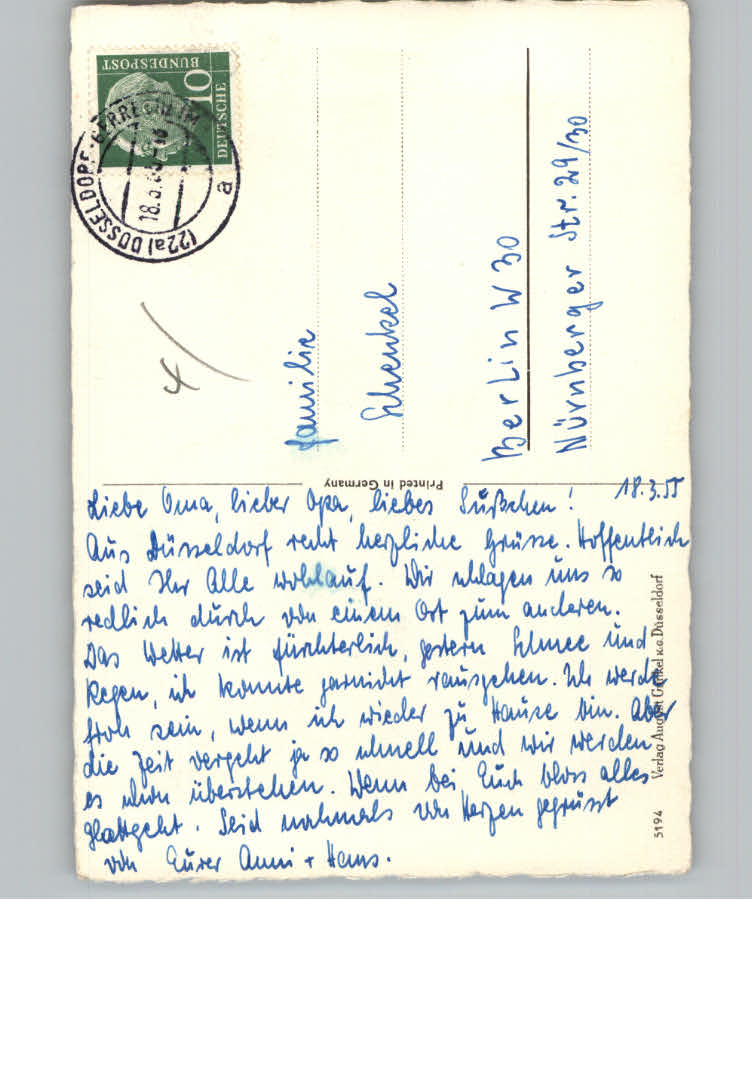 DEUTSCHE
BUNDESPOST
10
(22a) DÜSSELDORF-GERRESHEIM
18.3.55
a
Familie
Schenkel
Berlin W 30
Nürnberger Str. 29/30
Printed in Germany
18.3.55
Liebe Oma, lieber Opa, liebes Sußchen!
Aus Düsseldorf recht herzliche Grüsse. Hoffentlich
seid Ihr Alle wohlauf. Wir schlagen uns so
redlich durch von einem Ort zum anderen.
Das Wetter ist fürchterlich, gestern Schnee und
Regen, ich konnte garnicht rausgehen. Ich werde
froh sein, wenn ich wieder zu Hause bin. Aber
die Zeit vergeht ja so schnell und wir werden
es schon überstehen. Wenn bei Euch bloss alles
glattgeht. Seid nochmals von Herzen gegrüsst
von Eurer Anni + Hans.
5194 Verlag August Gunkel K.G. Düsseldorf